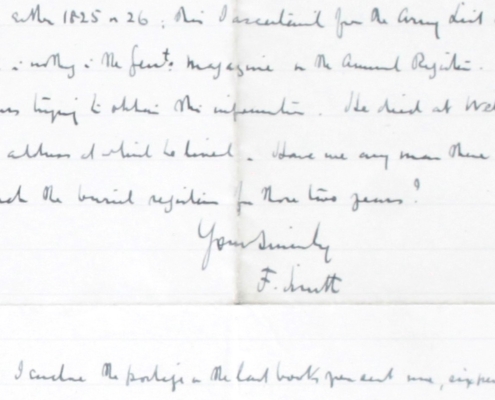 either 1825 or 26; this I ascertained from the Army List
is nothing in the Gent's magazine or the Annual Register.
trying to obtain this information. He died at
address at which he lived. Have we any man there
the burial registers for those two years?
Yours sincerely
F.
I enclose the postage on the last books you sent me,